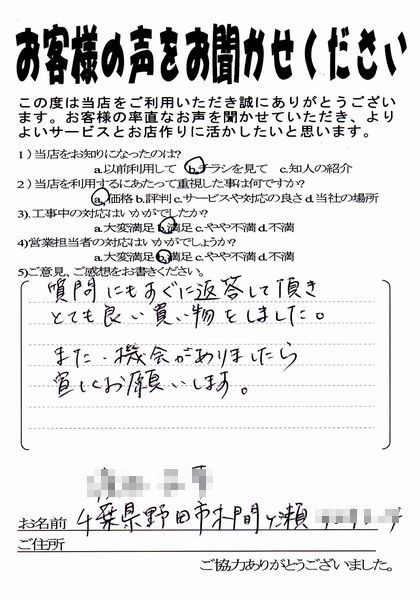 お客様の声をお聞かせください
この度は当店をご利用いただき誠にありがとうござい
ます。お客様の率直なお声を聞かせていただき、より
よいサービスとお店作りに活かしたいと思います。
1)当店をお知りになったのは?
a.以前利用して b.チラシを見て c.知人の紹介
2)当店を利用するにあたって重視した事は何ですか?
a.価格 b.評判 c.サービスや対応の良さ d.当社の場所
3).工事中の対応はいかがでしたか?
a.大変満足 b.満足 c.やや不満 d.不満
4)営業担当者の対応はいかがでしょうか?
a.大変満足 b.満足 c.やや不満 d.不満
5)ご意見、ご感想をお書きください。
質問にもすぐに返答して頂き
とても良い買い物をしました。
また、機会がありましたら
宜しくお願いします。
お名前 千葉県野田市木間ヶ瀬
ご住所
ご協力ありがとうございました。